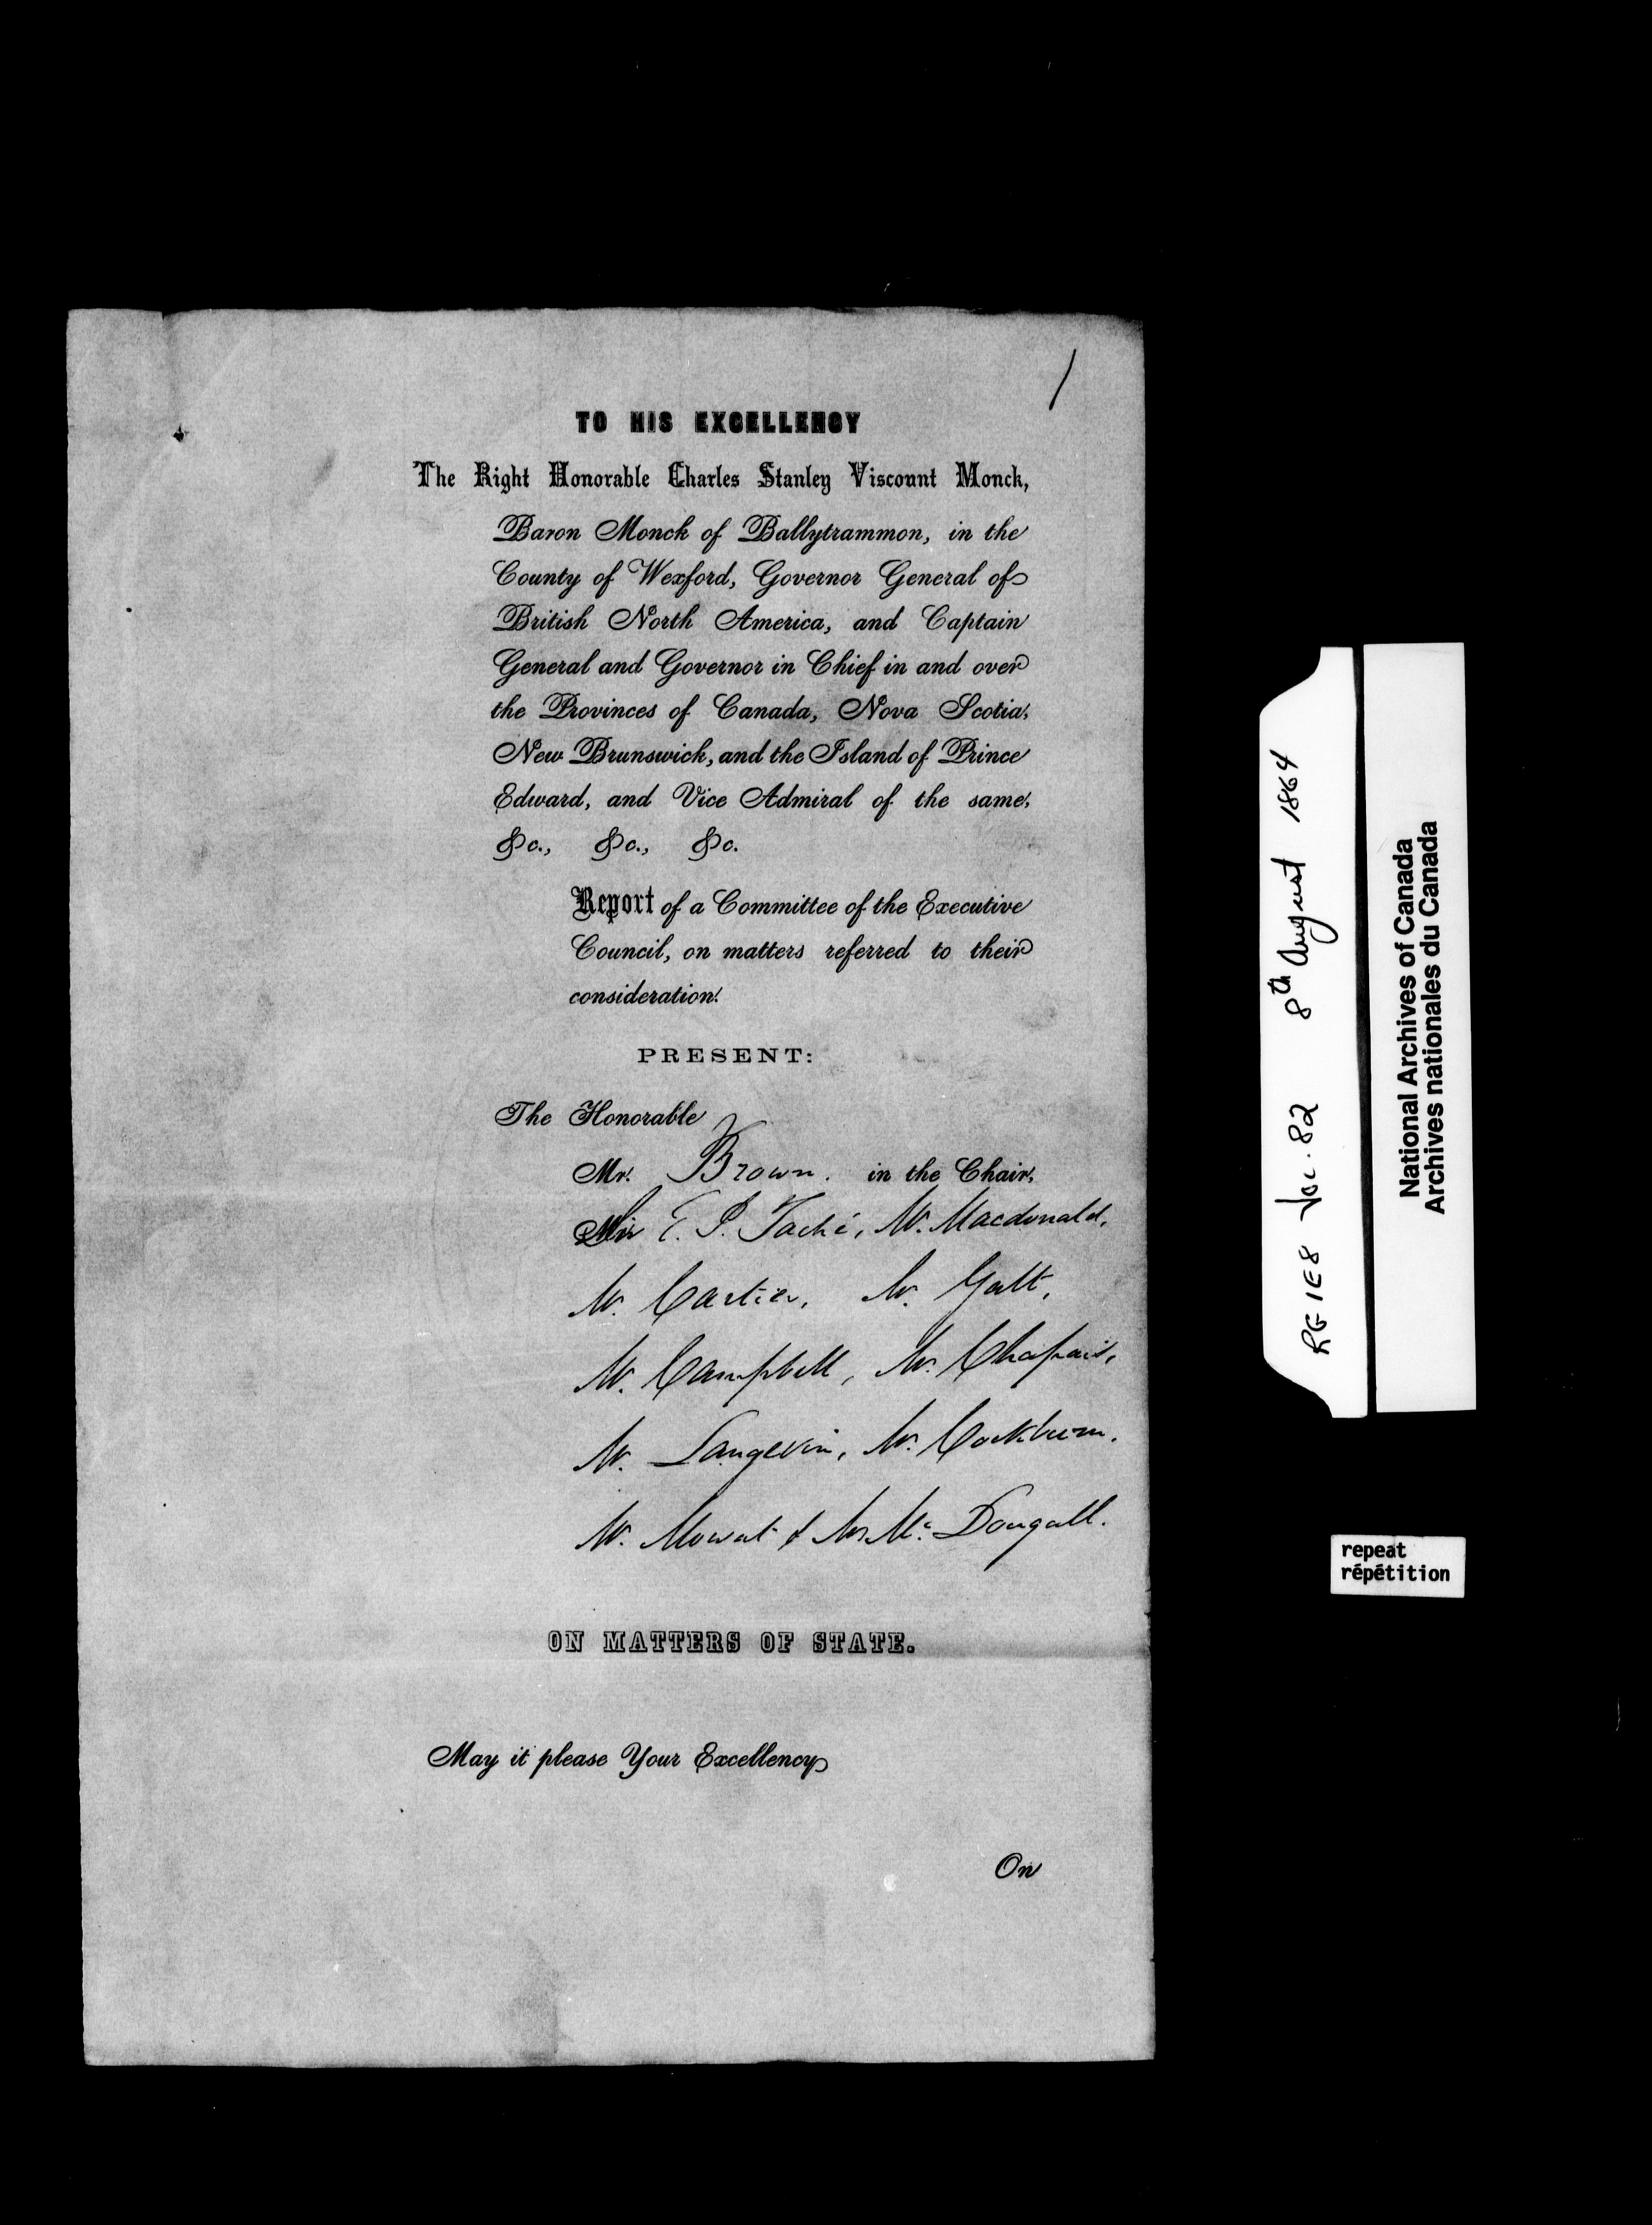 /
TO HIS EXCELLENCY
The Right Honorable Charles Stanley Viscount Monck,
Baron Monck of Ballytrammon, in the
County of Wexford, Governor General of
British North America, and Captain
General and Governor in Chief in and over
the Provinces of Canada, Nova Scotia,
New Brunswick, and the Island of Prince
Edward, and Vice Admiral of the same,
&c., &c., &c.
Report of a Committee of the Executive
Council, on matters referred to their
consideration.
PRESENT:
The Honorable
Mr. Brown. in the Chair,
Sir E. P. Taché, Mr. Macdonald,
Mr. Cartier, Mr. Galt,
Mr. Campbell, Mr. Chapais,
Mr. Langevin, Mr. Cockburn.
Mr. Mowat & Mr. McDougall.
ON MATTERS OF STATE.
May it please Your Excellency
On
RG 1E8 Vol. 82 8th August 1864
National Archives of Canada
Archives nationales du Canada
repeat
répétition